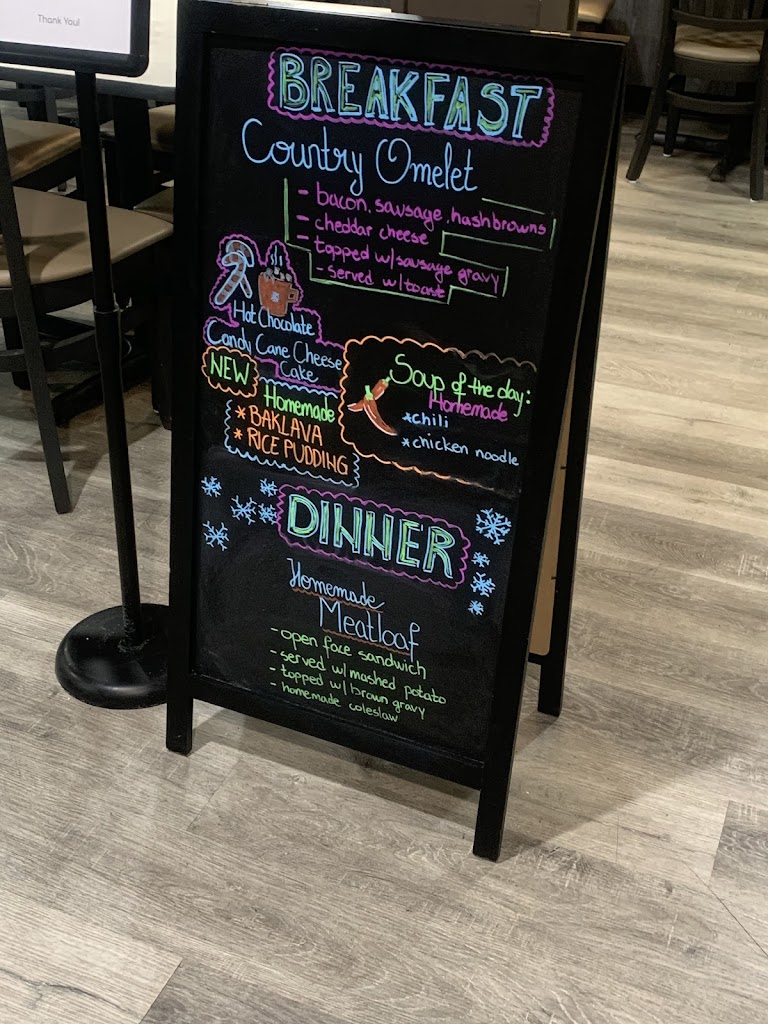 Thank You!
BREAKFAST
Country Omelet
- bacon, sausage, hashbrowns
- cheddar cheese
- topped w/sausage gravy
- served w/toast
Hot Chocolate
Candy Cane Cheese
Cake
NEW
Homemade
* BAKLAVA
* RICE PUDDING
Soup of the day:
Homemade
*chili
*chicken noodle
DINNER
Homemade
Meatloaf
- open face sandwich
- served w/ mashed potato
- topped w/ brown gravy
- homemade coleslaw